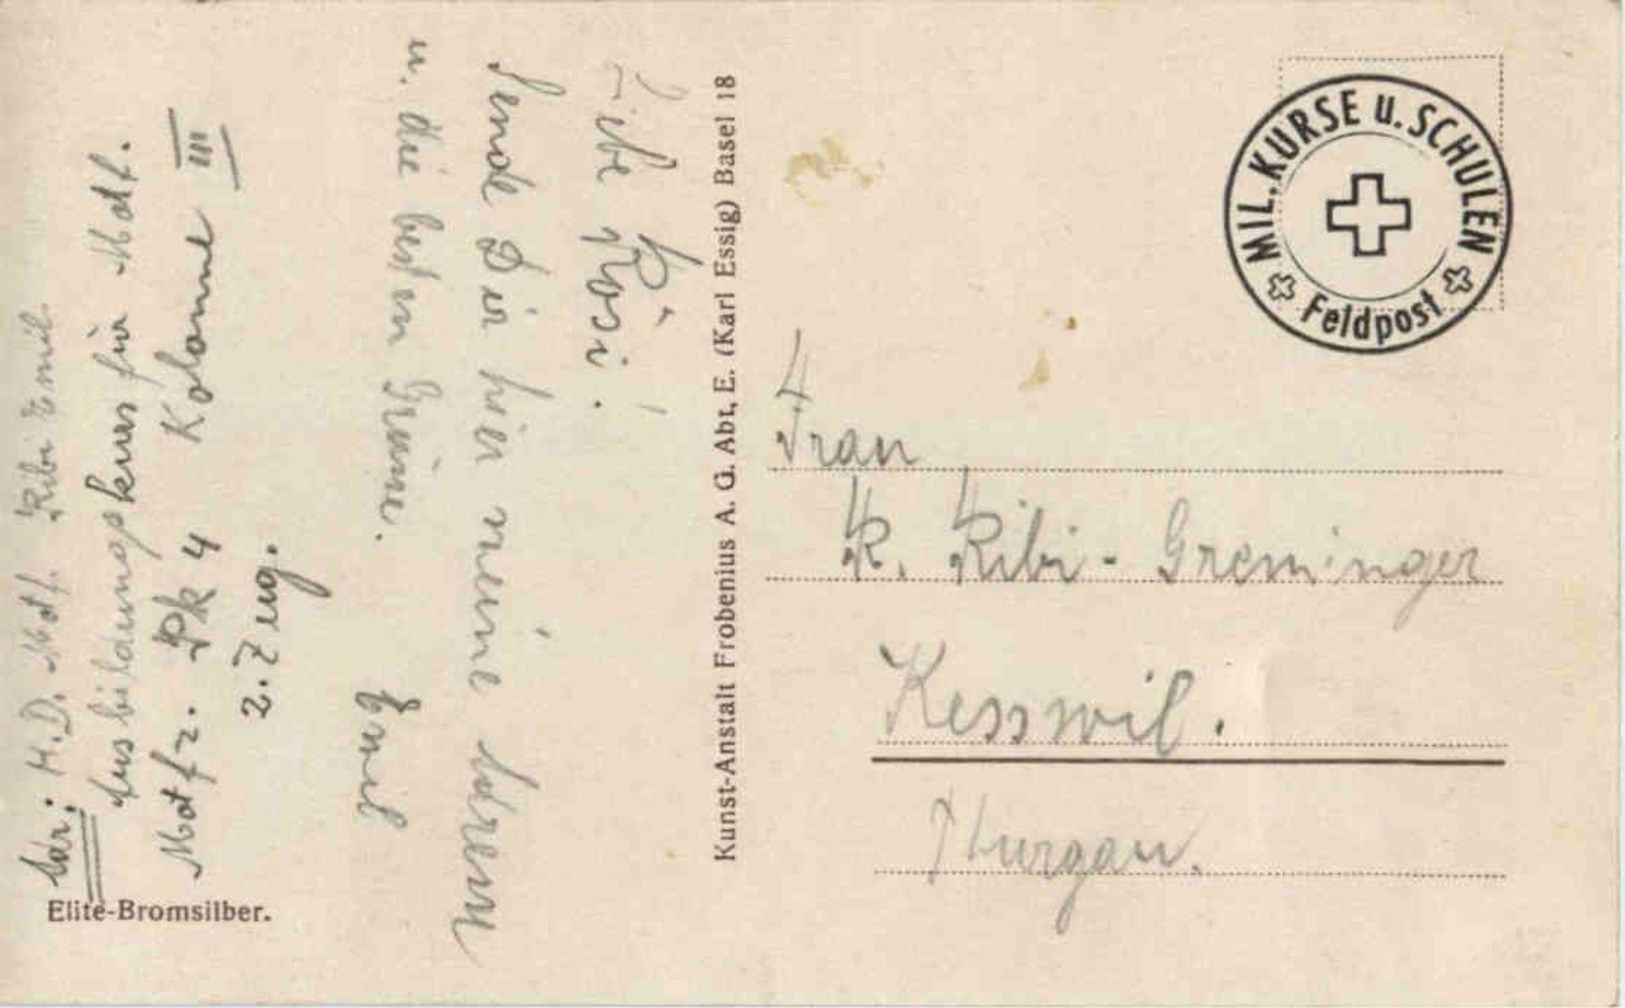 Libe Rösi!
Sende Dir hier meine Adresse
u. die besten Grüsse.
Emil
Adr: H.D. Motf. Ribi Emil
Ausbildungskurs für Motf.
Motfz. Pk 4 Kolonne III
2. Zug.
Elite-Bromsilber.
Kunst-Anstalt Frobenius A. G. Abt. E. (Karl Essig) Basel 18
MIL. KURSE u. SCHULEN
Feldpost
Frau
R. Ribi - Greminger
Kesswil.
Thurgau.